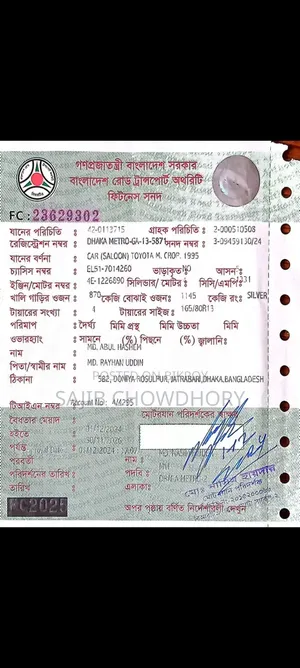 গণপ্রজাতন্ত্রী বাংলাদেশ সরকার
বাংলাদেশ রোড ট্রান্সপোর্ট অথরিটি
ফিটনেস সনদ
FC: 23629302
যানের পরিচিতি 42-0113715 গ্রাহক পরিচিতি : 2-000510508
রেজিস্ট্রেশন নম্বর : DHAKA METRO-GA-13-5871 সনদ নম্বর : 3-09459130/24
যানের বর্ণনা : CAR (SALOON) TOYOTA M. CROP. 1995
চ্যাসিস নম্বর : EL51-7014260 ভাড়াকৃত NO আসন :
ইঞ্জিন/মোটর নম্বর : 4E-1226890 সিলিন্ডার/মোটর : সিসি/এমপি 1331
খালি গাড়ির ওজন : 870 কেজি বোঝাই ওজন : 1145 কেজি রং: SILVER
টায়ারের সংখ্যা : 4 টায়ারের সাইজ: 165/80R13
পরিমাপ দৈর্ঘ্য মিমি প্রস্থ মিমি উচ্চতা মিমি
ওভারহ্যাং: সামনে (%) পিছনে (%) জ্বালানি:
নাম MD. ABUL HASHEM
পিতা/স্বামীর নাম MD. RAYHAN UDDIN
ঠিকানা 582, DONIYA ROSULPUR, JATRABARI, DHAKA, BANGLADESH
POSTED ON BIKROY
SAJIB CHOWDHORY
টিআইএন নম্বর Account No: মোটরযান পরিদর্শকের স্বাক্ষর
বৈধতার মেয়াদ
হইতে 01/12/2024
পর্যন্ত 30/11/2026
পরবর্তী 01/12/2024 নাম
পরিদর্শনের তারিখ: পদবি :
তারিখ এলাকা: DHAKA METRO
FC2025 অপর পৃষ্ঠায় বর্ণিত নির্দেশাবলী দেখুন